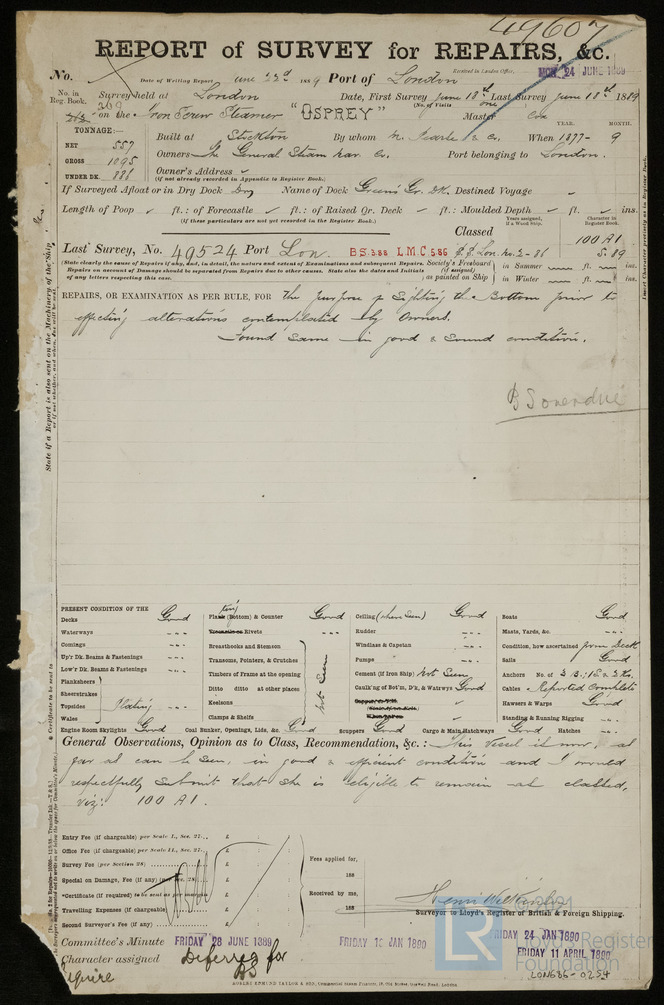 49607
REPORT of SURVEY for REPAIRS, &c.
No. Date of Writing Report June 22nd 1889 Port of London Received in London Office, MON. 24 JUNE 1889
No. in Reg. Book. Survey held at London Date, First Survey June 18th Last Survey June 18th 1889
(No. of Visits one)
on the Iron Screw Steamer "OSPREY" Master Cox
TONNAGE:—
NET 557
GROSS 1095
UNDER DK. 886
YEAR. MONTH.
Built at Stockton By whom M. Pearse & Co. When 1877- 9
Owners The General Steam Nav. Co. Port belonging to London.
Owner's Address
(if not already recorded in Appendix to Register Book.)
If Surveyed Afloat or in Dry Dock Dry Name of Dock Green's Gr. Dk. Destined Voyage
Length of Poop ft.: of Forecastle ft.: of Raised Qr. Deck ft.: Moulded Depth ft. ins.
(if these particulars are not yet recorded in the Register Book.)
Years assigned, if a Wood Ship. Character in Register Book.
Classed 100 A1
5.89
Last Survey, No. 49524 Port Lon. BS.3.88 LMC 5.86 S.S. Lon. No. 2-86
(State clearly the cause of Repairs if any, and, in detail, the nature and extent of Examinations and subsequent Repairs.
Repairs on account of Damage should be separated from Repairs due to other causes. State also the dates and Initials
of any letters respecting this case.
Society's Freeboard (if assigned) as painted on Ship
in Summer ft. ins.
in Winter ft. ins.
REPAIRS, OR EXAMINATION AS PER RULE, FOR the purpose of Sighting the Bottom prior to
effecting alterations contemplated by Owners.
Found same in good & sound condition.
BS overdue
PRESENT CONDITION OF THE
Decks Good
Waterways
Comings
Up'r Dk. Beams & Fastenings
Low'r Dk. Beams & Fastenings
Planksheers
Sheerstrakes
Topsides
Wales
Plating
Engine Room Skylights Good
Plating (Bottom) & Counter Good
Rivets
Breasthooks and Stemson
Transoms, Pointers, & Crutches
Timbers of Frame at the opening
Ditto ditto at other places
Keelsons
Clamps & Shelfs
Not Seen
Coal Bunker, Openings, Lids, &c. Good
Ceiling (where seen) Good
Rudder
Windlass & Capstan
Pumps
Cement (if Iron Ship) Not Seen
Caulk'ng of Bot'm, D'k, & Waterw'ys Good
Scuppers Good
Cargo & Main Hatchways Good
Boats Good
Masts, Yards, &c.
Condition, how ascertained from Deck
Sails Good
Anchors No. of 3 B.; 1 S. & 2 Ks.
Cables Reported Complete
Hawsers & Warps Good
Standing & Running Rigging
Hatches
General Observations, Opinion as to Class, Recommendation, &c.: This Vessel is now, as
far as can be seen, in good & efficient condition and I would
respectfully submit that she is eligible to remain as classed,
viz: 100 A1.
Entry Fee (if chargeable) per Scale I., Sec. 27... £
Office Fee (if chargeable) per Scale II., Sec. 27... £
Survey Fee (per Section 28) £
Special on Damage, Fee (if any) (per Sec. 28) £
*Certificate (if required) to be sent as per margin £
Travelling Expenses (if chargeable) £
Second Surveyor's Fee (if any) £
Fees applied for,
188
Received by me,
188
Surveyor to Lloyd's Register of British & Foreign Shipping.
Committee's Minute FRIDAY 28 JUNE 1889 FRIDAY 10 JAN 1890 FRIDAY 24 JAN 1890
FRIDAY 11 APRIL 1890
Character assigned Deferred for
BS
LON686-0254
© 2021
LR
Lloyd's Register
Foundation